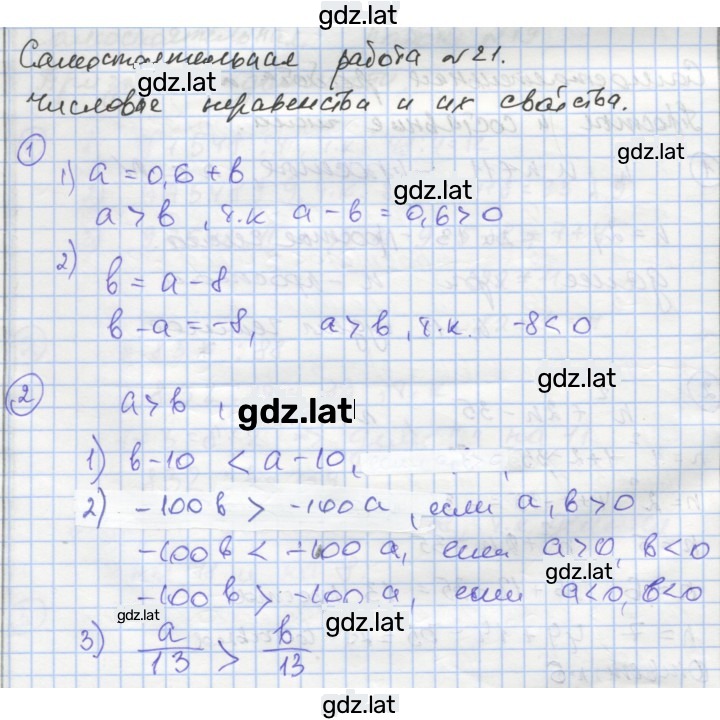 gdz.lat
Самостоятельная работа №21.
gdz.lat
Числовые неравенства и их свойства.
1
1) a = 0,6 + b
gdz.lat
a > b , т.к a - b = 0,6 > 0
2)
b = a - 8
b - a = -8, a > b , т.к. -8 < 0
gdz.lat
2 a > b ,
gdz.lat
1) b - 10 < a - 10,
2) -100b > -100a , если a, b > 0
-100b < -100a, если a > 0, b < 0
gdz.lat
-100b > -100a, если a < 0, b < 0
gdz.lat
3) a/13 > b/13
gdz.lat
gdz.lat